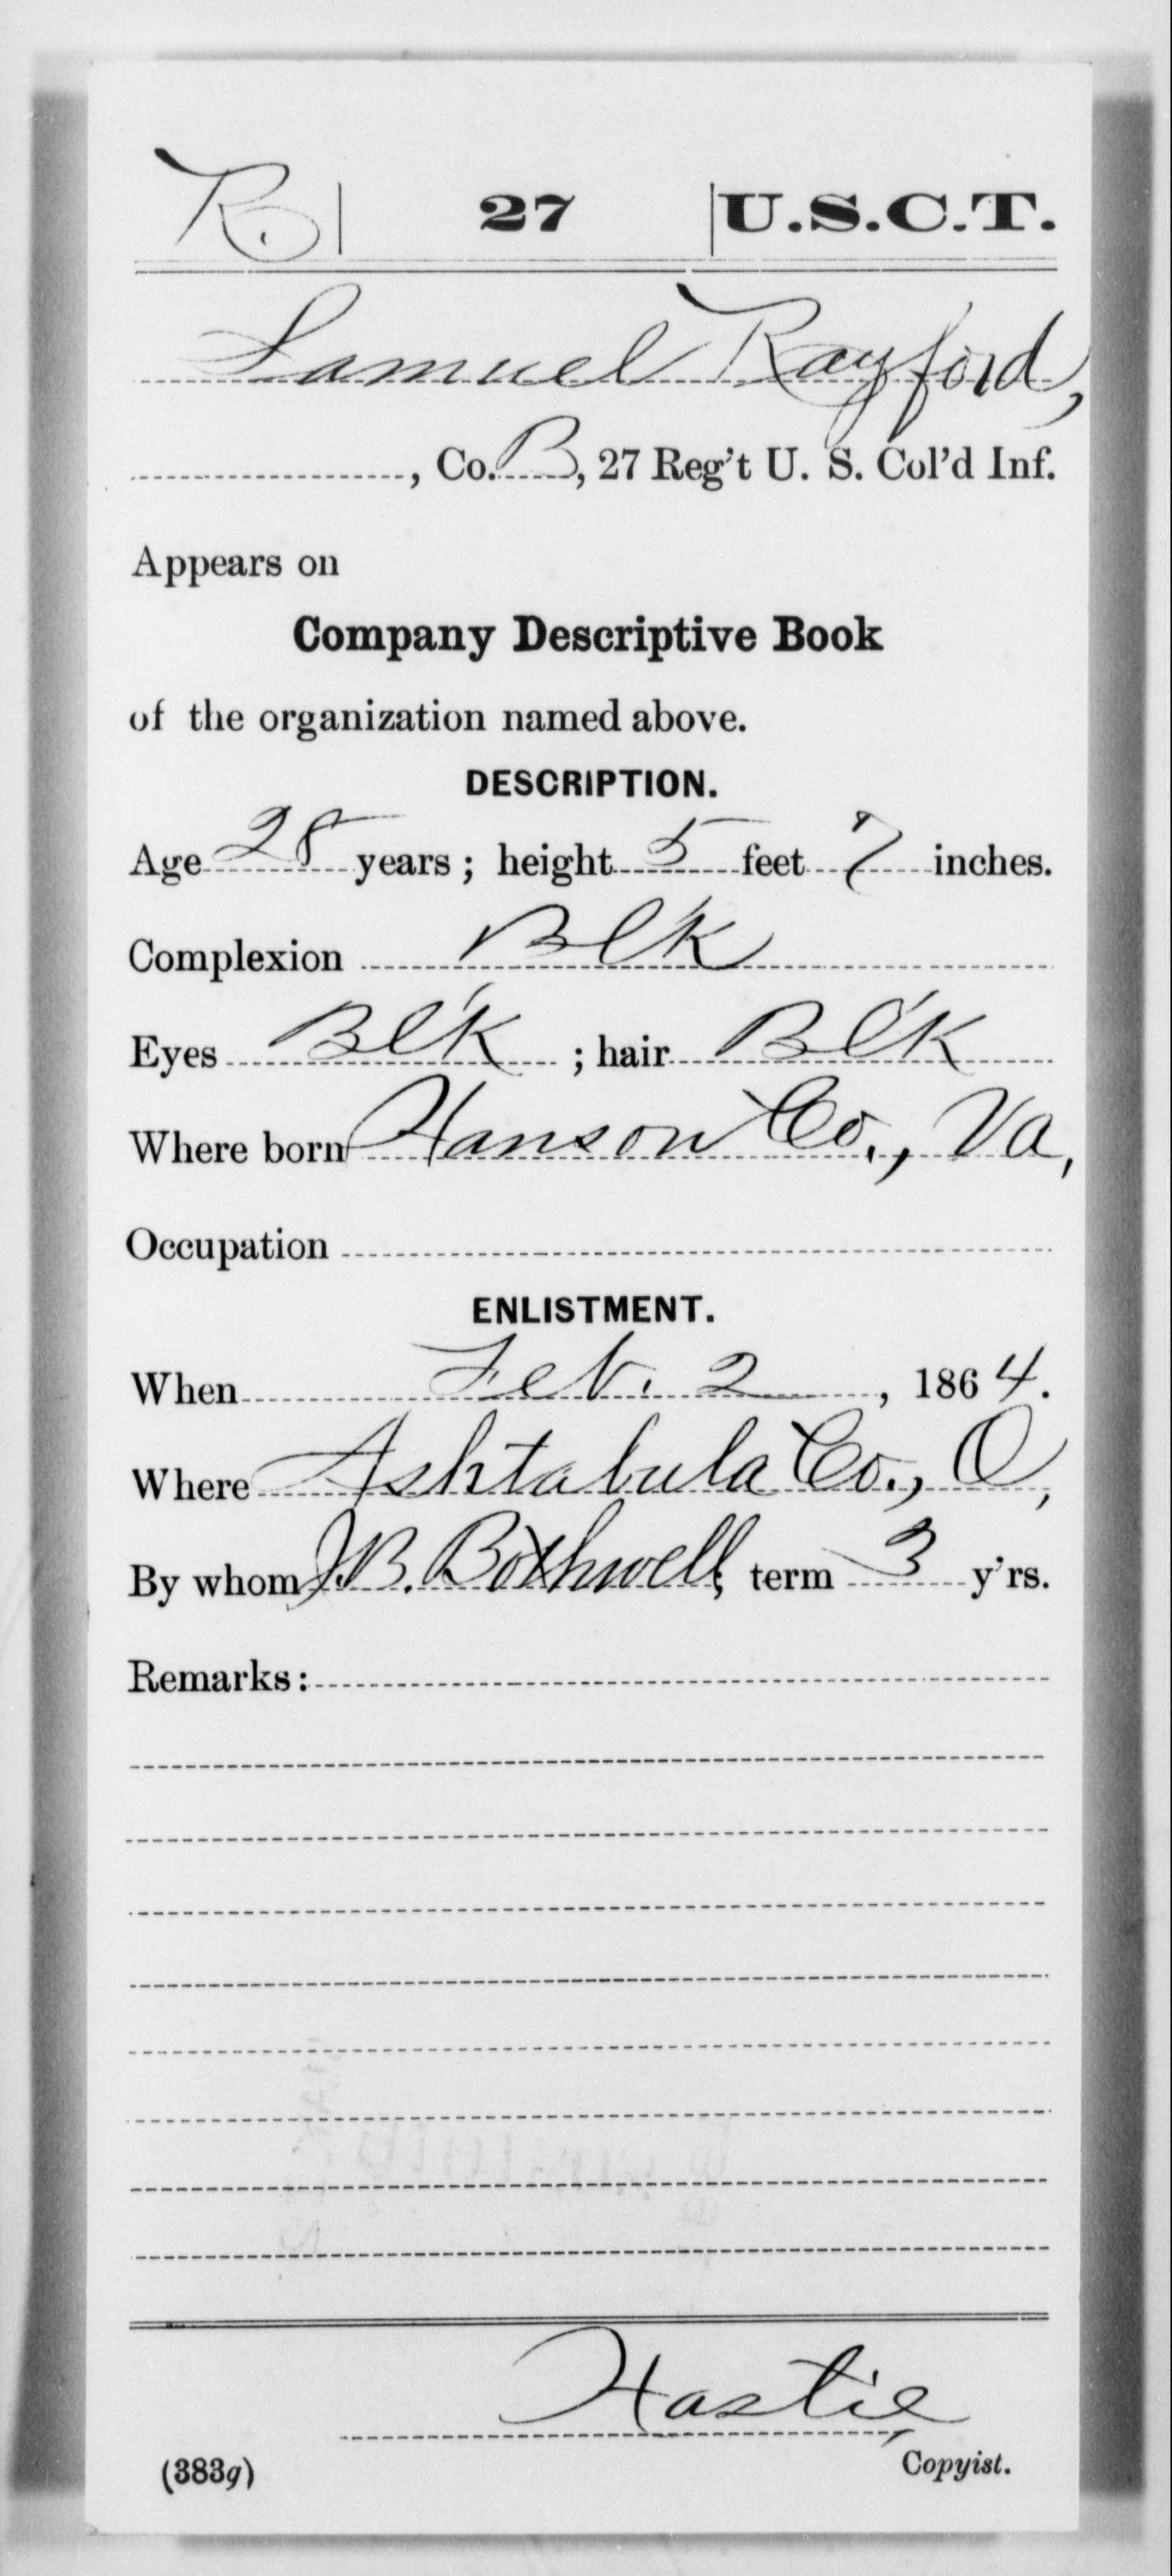 R | 27 | U.S.C.T.
Samuel Rayford,
, Co. B, 27 Reg't U. S. Col'd Inf.
Appears on
Company Descriptive Book
of the organization named above.
DESCRIPTION.
Age 28 years; height 5 feet 7 inches.
Complexion Blk
Eyes Bl'k; hair Bl'k
Where born Hanson Co., Va,
Occupation
ENLISTMENT.
When Feb. 2, 1864.
Where Ashtabula Co., O,
By whom J.B. Bothwell; term 3 y'rs.
Remarks:
Hastie,
(383g) Copyist.